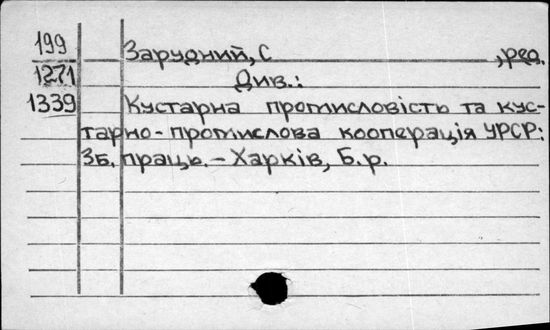 199 Зарудний, С , ред.
1271 Див.:
1339 Кустарна промисловість та кус-
тарно-промислова кооперація УРСР:
Зб. праць. – Харків, Б.р.